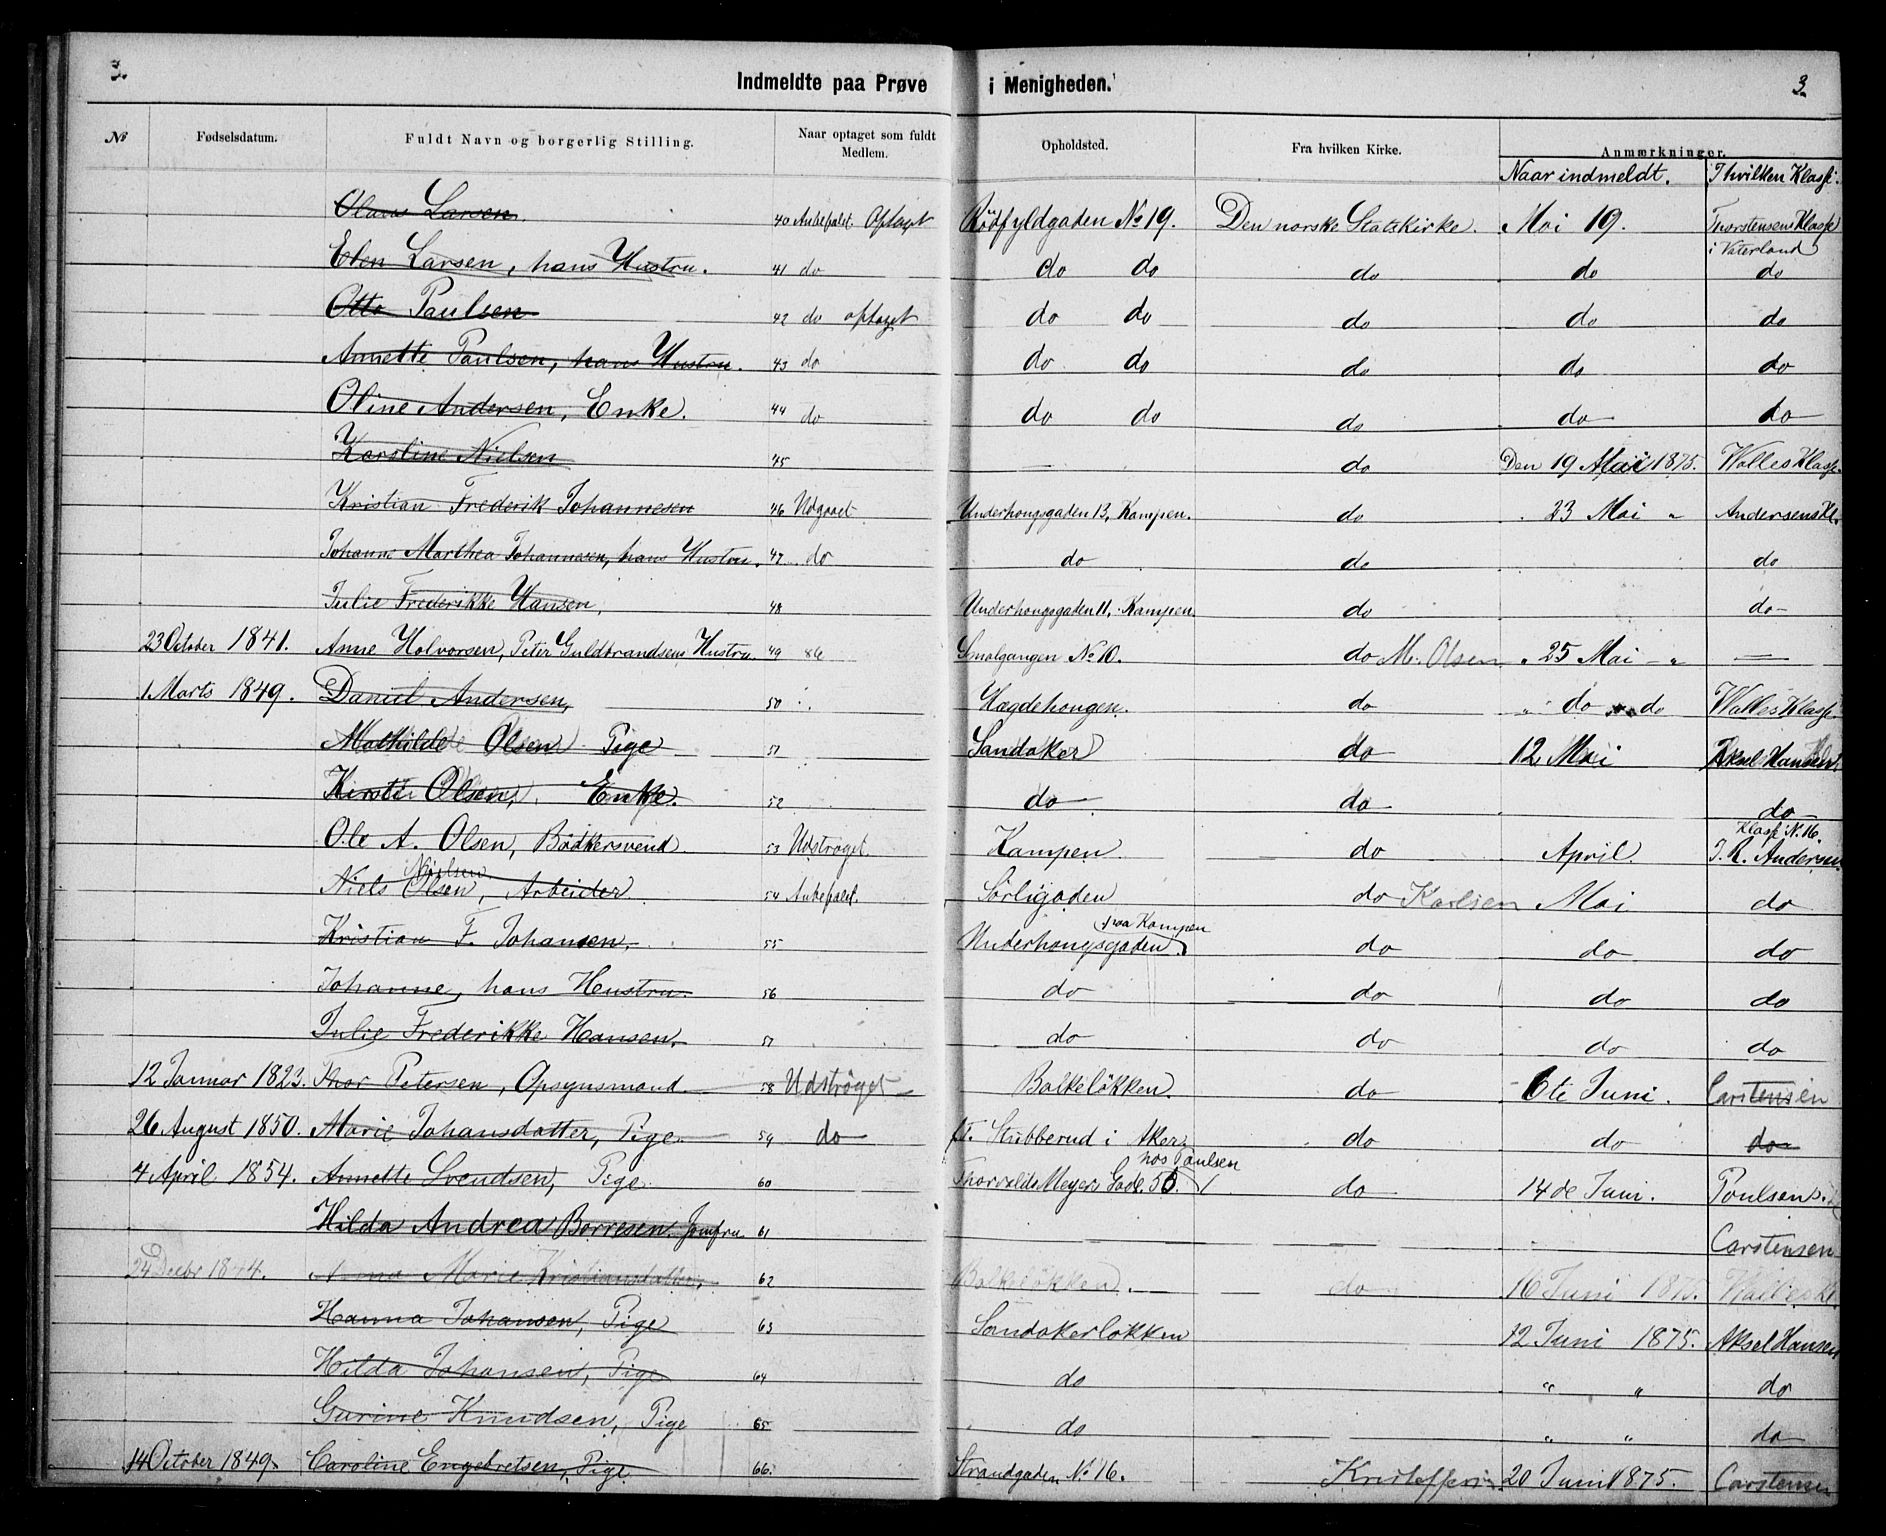 3.
Indmeldte paa Prøve i Menigheden.
3
№ Fødselsdatum. Fuldt Navn og borgerlig Stilling. Naar optaget som fuldt Medlem. Opholdsted. Fra hvilken Kirke. Anmærkninger.
Naar indmeldt. I hvilken Klasse.
Olaus Larsen 40 Anbefalet. Optaget Rödfyldgaden No 19. Den norske Statskirke. Mai 19. Thorstensens Klasse i Vaterland
Elen Larsen, hans Hustru. 41 do do do do do do
Otto Paulsen 42 do optaget do do do do do
Annette Paulsen, hans Hustru. 43 do do do do do do
Oline Andersen, Enke. 44 do do do do do do
Karoline Nielsen 45 — do Den 19 Mai 1875. Walles Klasse
Kristian Frederik Johannesen 46 Udgaaet Underhougsgaden 13, Kampen. do 23 Mai " Andersens Kl.
Johanne Marthea Johannesen, hans Hustru. 47 do do do do
Julie Frederikke Hansen, 48 Underhougsgaden 11, Kampen. do do
23 October 1841. Anne Halvorsen, Peter Guldbrandsens Hustru. 49 Smalgangen No 10. do M. Olsen " 25 Mai " —
1 Marts 1849. Daniel Andersen, 50 Hægdehougen. do " do do Walles Klasse
Mathilde Olsen Pige 51 Sandaker do 12 Mai Aksel Hansen
Kirsti Olsen, Enke. 52 do do do
Ole A. Olsen, Bödkersvend. 53 Udströget. Kampen do April. Klasse No. 16. Andersen
Niels Olsen, Nielsen Arbeider 54 Anbefalet. Sörligaden do Karlsen Mai do
Kristian F. Johansen, 55 Underhougsgaden paa Kampen do do do
Johanne, hans Hustru. 56 do do do do
Julie Frederikke Hansen. 57 do do do do
12 Januar 1823. Thor Petersen, Opsynsmand. 58 Udströget Balkelökken. do 6te Juni. Carstensen
26 August 1850. Marie Johansdatter, Pige. 59 do Stubberud i Aker. do do do
4 April 1854. Annette Svendsen, Pige 60 Thorvald Meyers Gade. 56. hos Paulsen do 14de Juni. Poulsen.
Hilda Andrea Borresen. Jomfru 61 Carstensen
24 Decbr 1844. Anna Marie Kristiansdatter, 62 Balkelökken. do 16 Juni 1875. Walles Kl.
Hanna Johansen, Pige 63 Sandakerlökken 12 Juni 1875. Aksel Hansen
Hilda Johansen, Pige 64 do " " do
Gurine Knudsen, Pige 65 do " " do
14 October 1849. Caroline Engebretsen, Pige 66. Strandgaden No 16. 20 Juni 1875. Carstensen